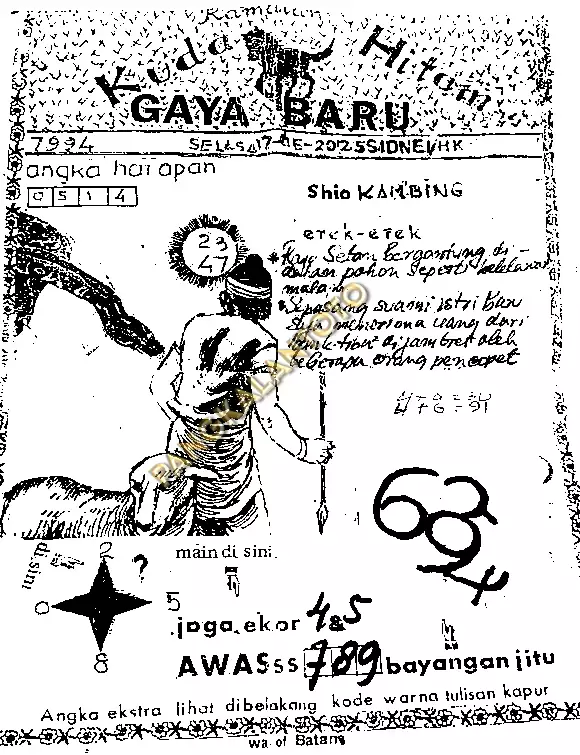 Ramalan
Kuda Hitam
GAYA BARU
7994 SELASA 17-JE-2025 SIDNEI/HK
angka harapan
0 5 1 4
Shio KAMBING
erek-erek
23
47
* Raja Setan Bergantung di-
dahan pohon seperti kelelawar
malam
* Sepasang suami istri baru
menerima uang dari
di jambret oleh
beberapa orang pencopet
476=91
PANGKALANTOTO
63
9
24
di sini
2
?
0
5
8
main di sini.
.jaga.ekor 4&5
AWASss 789 bayangan jitu
Angka ekstra lihat dibelakang kode warna tulisan kapur
wa of Batans